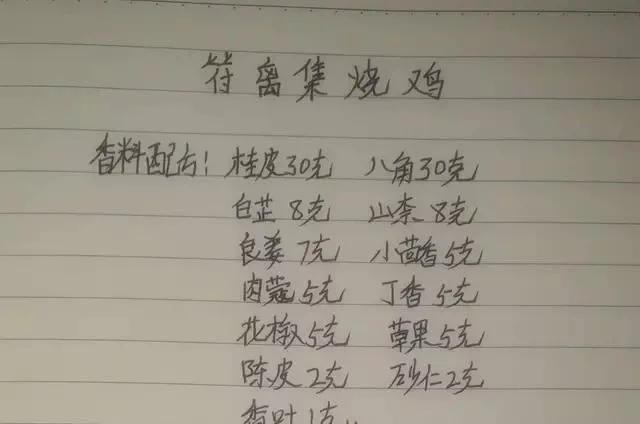 符离集烧鸡
香料配方：桂皮30克 八角30克
白芷8克 山柰8克
良姜7克 小茴香5克
肉蔻5克 丁香5克
花椒5克 草果5克
陈皮2克 砂仁2克
香叶1克